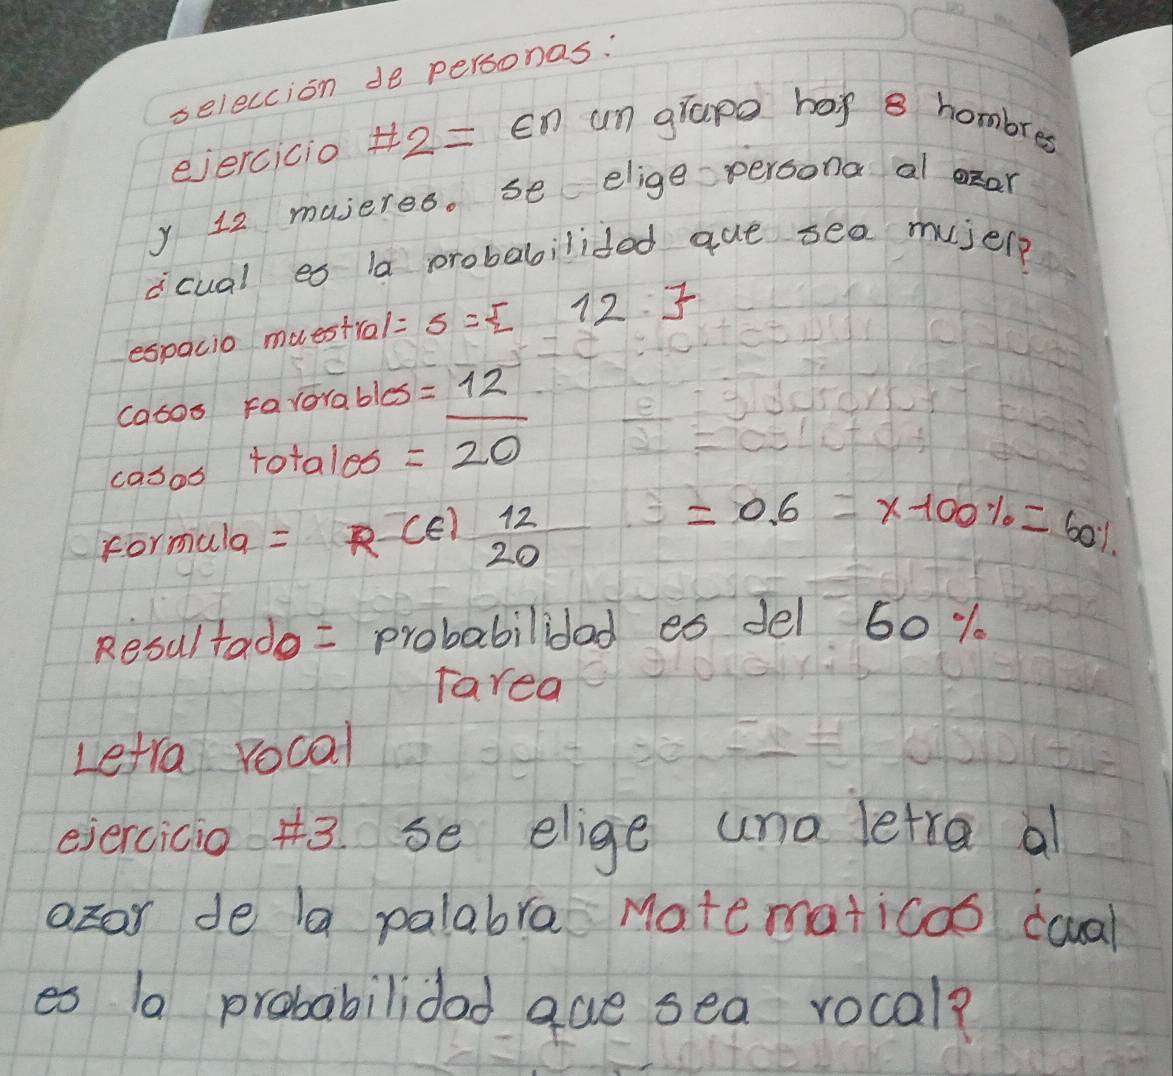 selección de personas:
ejercicio #2 = En un grupo hay 8 hombres
y 12 mujeres. se elige persona al azar
¿cual es la probabilidad que sea mujer?
espacio muestral = s = { 12 }
casos Favorables = 12
casos totales = 20
Formula = P (E) 12/20 = 0.6 = x 100% = 60%.
Resultado = probabilidad es del 60%
Tarea
Letra vocal
ejercicio #3. se elige una letra al
azar de la palabra Matematicas ¿cual
es la probabilidad que sea vocal?